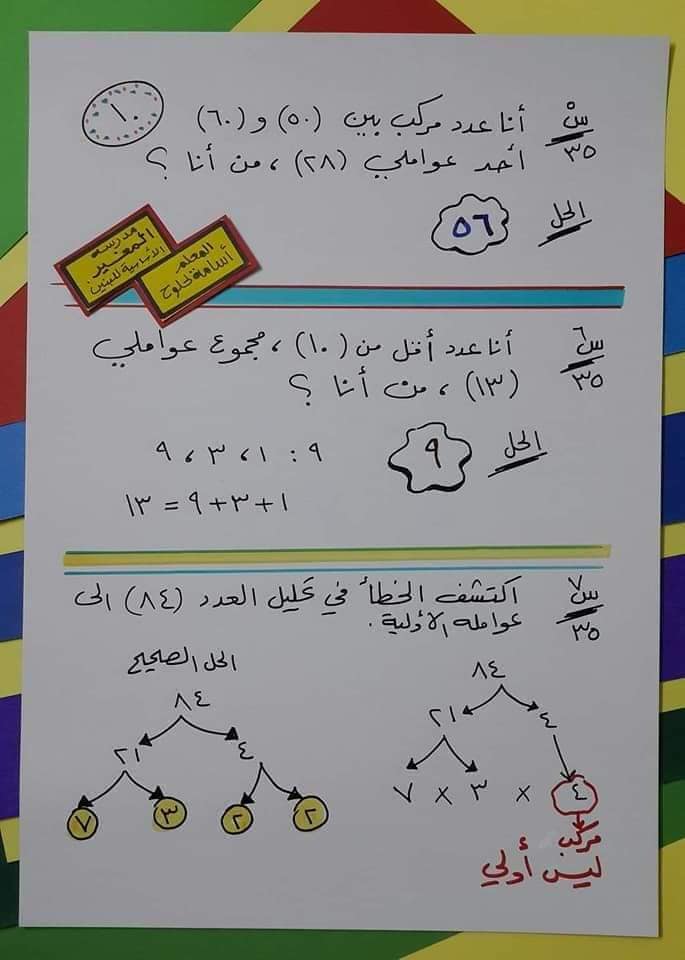 ١٠
س٥ أنا عدد مركب بين (٥٠) و (٦٠)
٣٥ أحد عواملي (٢٨) ، من أنا ؟
الحل ٥٦
مدرسة
المغير
الأساسية للبنين
المعلم
أسامة لحلوح
س٦ أنا عدد أقل من (١٠) ، مجموع عواملي
٣٥ (١٣) ، من أنا ؟
الحل ٩
٩ : ١ ، ٣ ، ٩
١ + ٣ + ٩ = ١٣
س٧ اكتشف الخطأ في تحليل العدد (٨٤) الى
٣٥ عوامله الأولية .
٨٤
٤ ٢١
٤ × ٣ × ٧
مركب
ليس أولي
الحل الصحيح
٨٤
٤ ٢١
٢ ٢ ٣ ٧